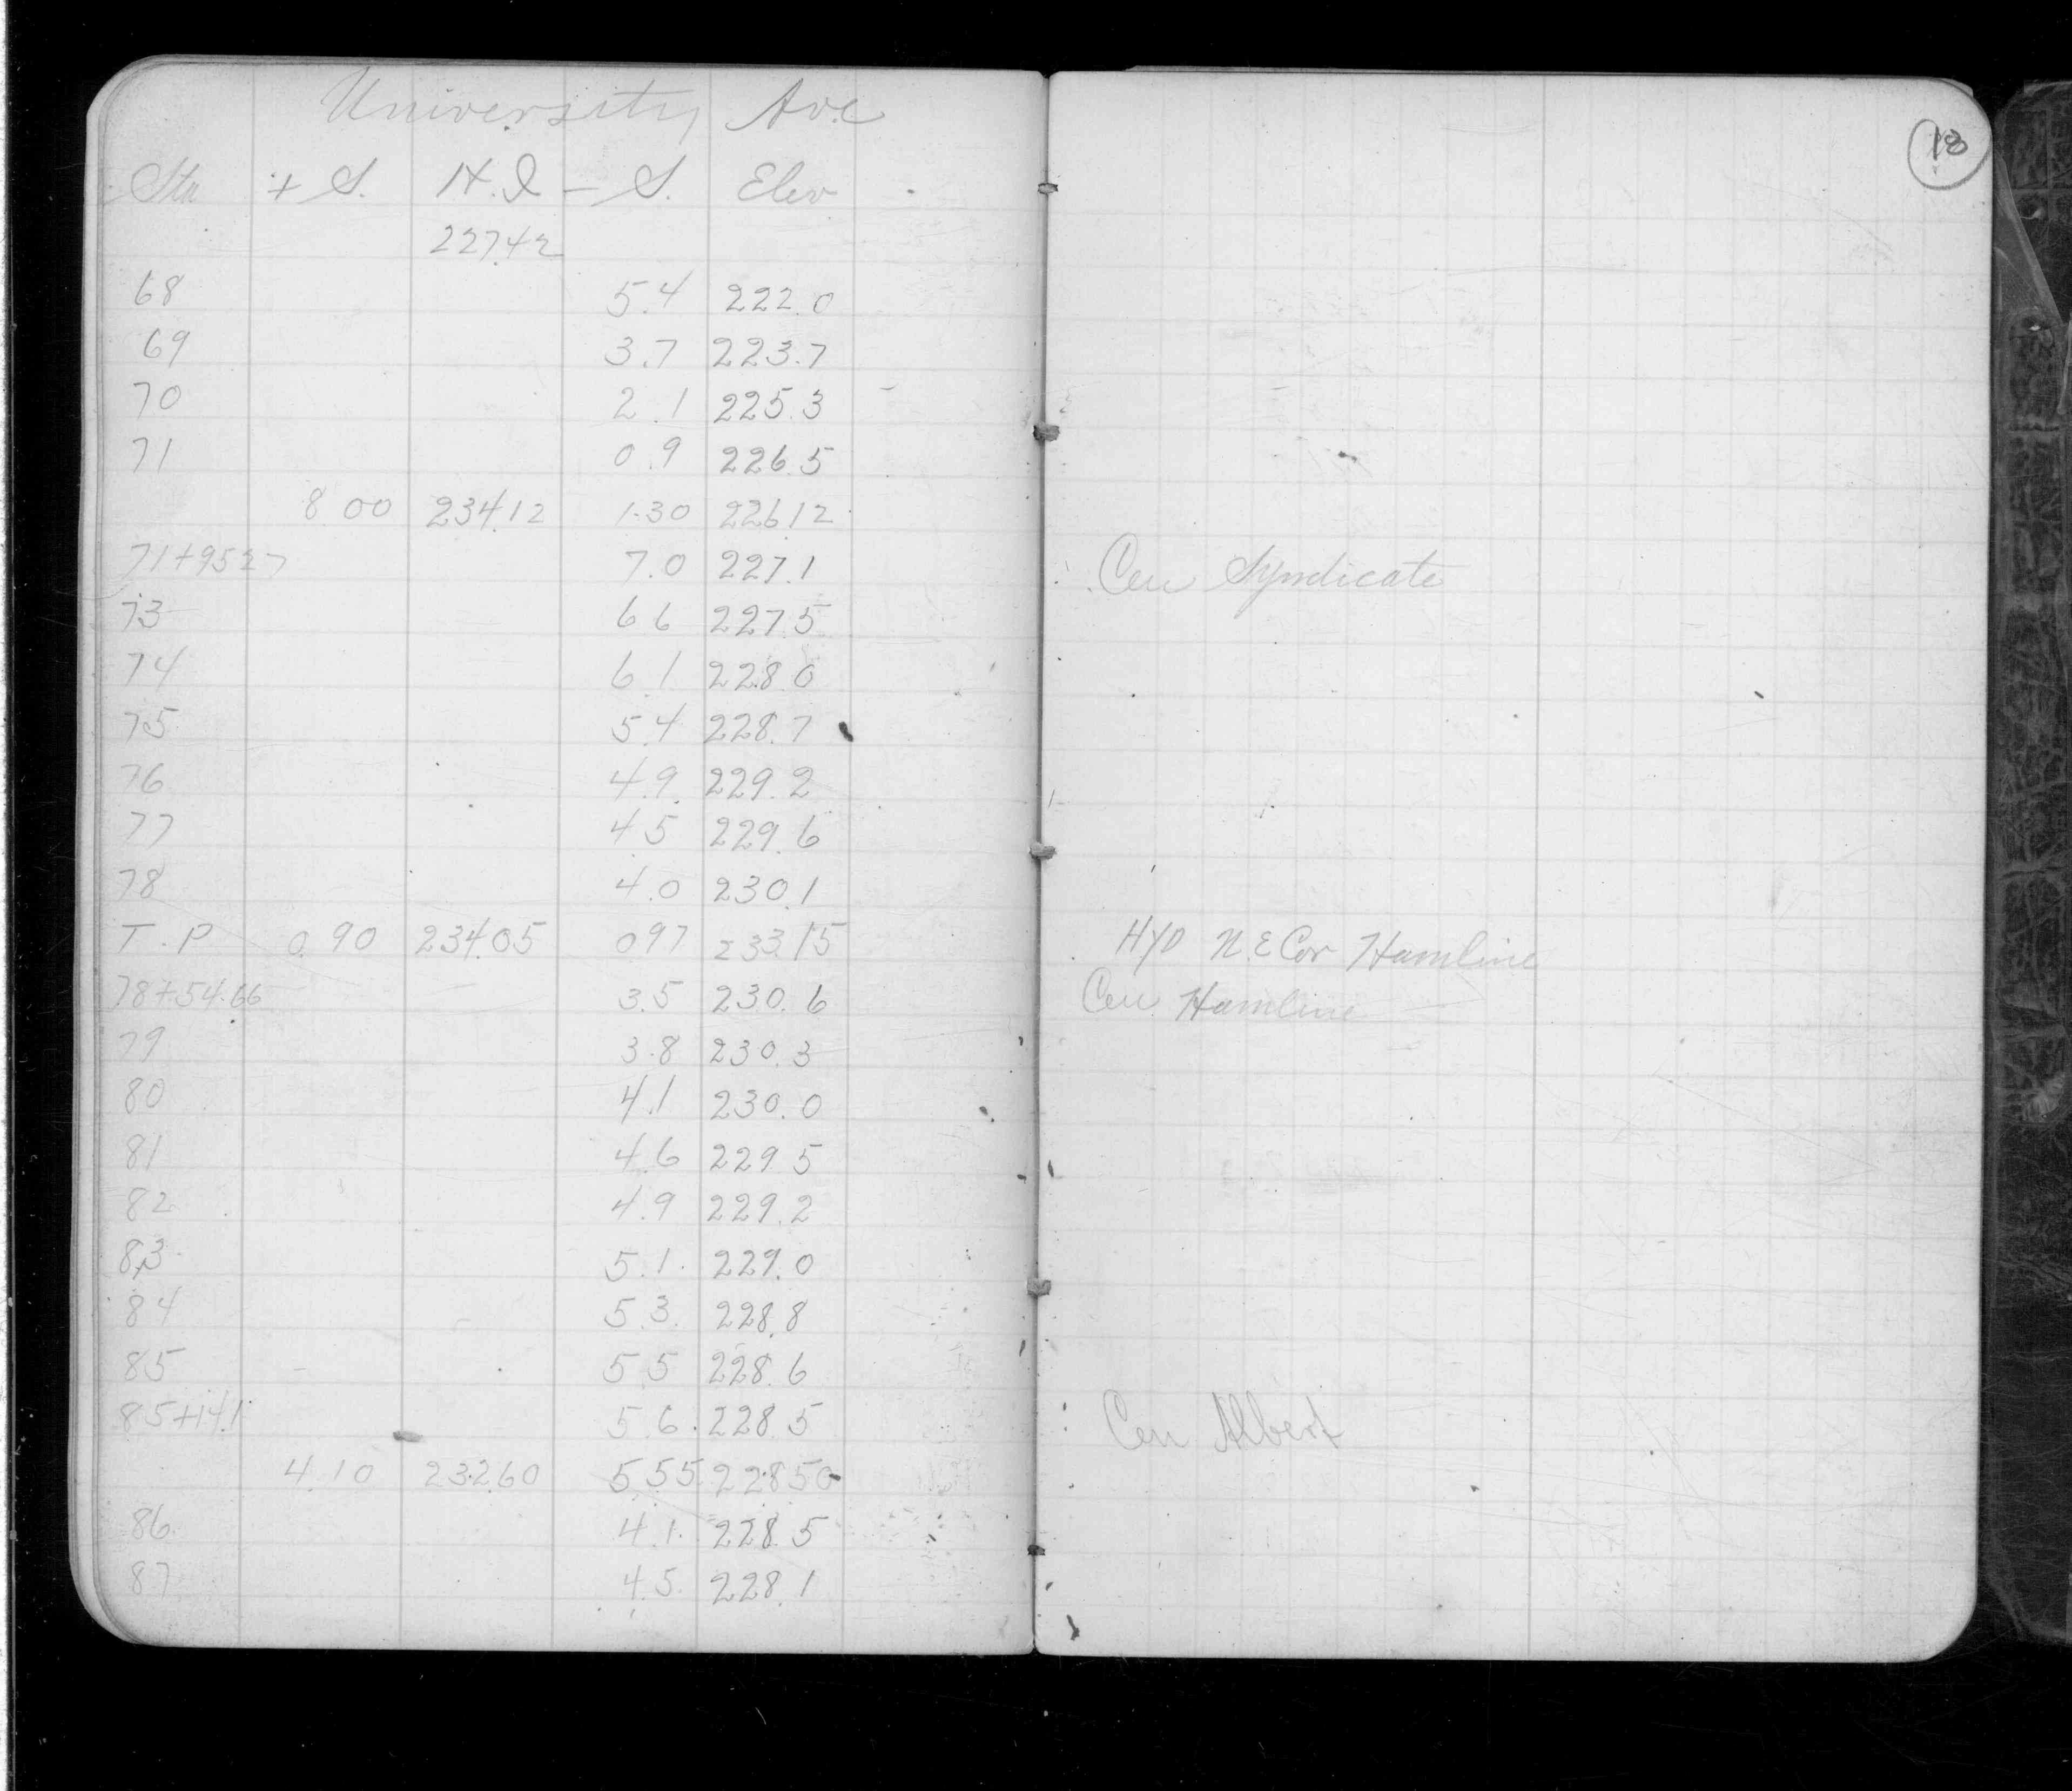 University Ave
18
Sta + S. H.I - S. Elev
227.42
68 5.4 222.0
69 3.7 223.7
70 2.1 225.3
71 0.9 226.5
8 00 234.12 1.30 226 12
71+95 27 7.0 227.1 Cen Syndicate
73 6 6 227 5
74 6.1 228 0
75 5.4 228.7
76 4.9 229.2
77 4 5 229.6
78 4.0 230.1
T.P 0.90 234.05 0 97 233.15 HYD N.E Cor Hamline
78+54.66 3.5 230.6 Cen Hamline
79 3.8 230.3
80 4.1 230.0
81 4.6 229 5
82 4.9 229.2
83 5.1. 229.0
84 5.3. 228.8
85 5 5 228.6
85+14.1 5.6. 228.5 Cen Albert
4.10 232.60 5.55 228 50
86 4.1. 228.5
87 4.5. 228.1